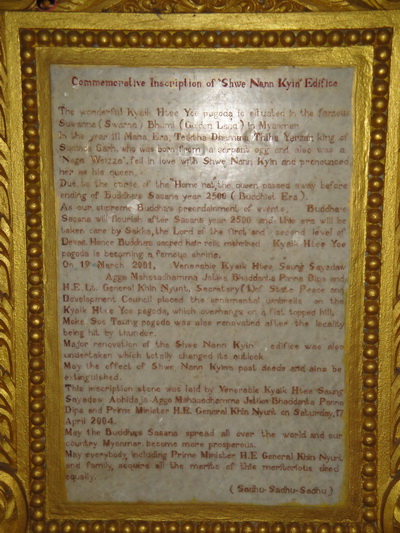 Commemorative Inscription of "Shwe Nann Kyin" Edifice
The wonderful Kyaik Htee Yoe pagoda is situated in the famous
Suvanna (Swarna) Bhumi (Golden Land) in Myanmar
In the year 111 Maha Era, Teikkha Dhamma Thiha Yarzar, king of
who was born from a serpent egg and also was a
"Naga Weizza", fell in love with Shwe Nann Kyin and pronounced
her as his queen.
Due to the curse of the "Home nat", the queen passed away before
ending of Buddhara Sasana year 2500 (Buddhist Era).
As our supreme Buddha's preordainment of events, Buddhara
Sasana will flourish after Sasana year 2500 and this area will be
taken care by Sakka, the Lord of the first and second level of
Devas. Hence Buddha's sacred hair relic enshrined Kyaik Htee Yoe
pagoda is becoming a famous shrine.
On 19 March 2001, Venerable Kyaik Htee Saung Sayadaw
Agga Mahasadhamma Jotika Bhaddanta Panna Dipa and
H.E. Lt. General Khin Nyunt, Secretary(1) of State Peace and
Development Council placed the ornamental umbrella on the
Kyaik Htee Yoe pagoda, which overhangs on a flat topped hill.
Moke Soe Taung pagoda was also renovated after the locality
being hit by thunder.
Major renovation of the Shwe Nann Kyin edifice was also
undertaken which totally changed its outlook.
May the effect of Shwe Nann Kyin's past deeds and sins be
extinguished.
This inscription stone was laid by Venerable Kyaik Htee Saung
Sayadaw Abhidaja Agga Mahasadhamma Jotika Bhaddanta Panna
Dipa and Prime Minister H.E. General Khin Nyunt on Saturday, 17
April 2004.
May the Buddha's Sasana spread all over the world and our
country Myanmar become more prosperous.
May everybody, including Prime Minister H.E General Khin Nyunt
and family, acquire all the merits of this meritorious deed
equally.
(Sadhu-Sadhu-Sadhu)